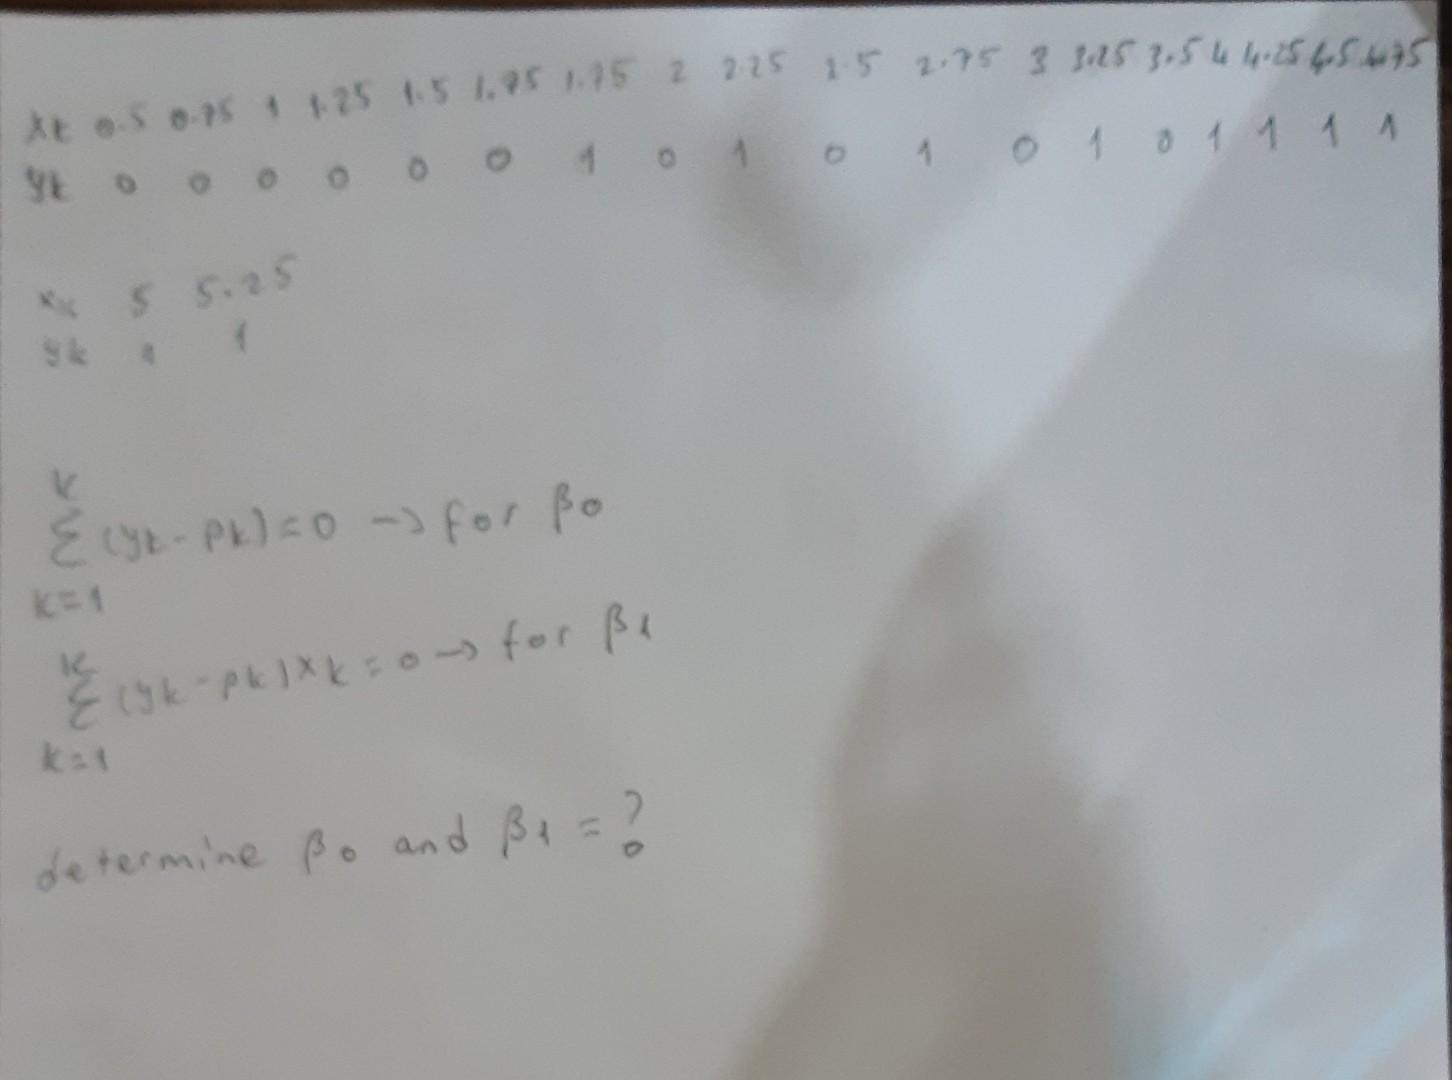 xk 0.5 0.75 1 1.25 1.5 1.75 1.75 2 2.25 2.5 2.75 3 3.25 3.5 4 4.25 4.5 4.75
yk 0 0 0 0 0 0 1 0 1 0 1 0 1 0 1 1 1 1
xk 5 5.25
yk 1 1
K
Σ (yk - pk) = 0 -> for β0
k=1
K
Σ (yk - pk) xk = 0 -> for β1
k=1
determine β0 and β1 = ?